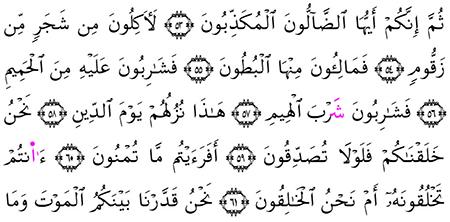 ثُمَّ إِنَّكُمْ أَيُّهَا ٱلضَّآلُّونَ ٱلْمُكَذِّبُونَ ﴿٥٣﴾ لَأٓكِلُونَ مِن شَجَرٍ مِّن
زَقُّومٍ ﴿٥٤﴾ فَمَالِـُٔونَ مِنْهَا ٱلْبُطُونَ ﴿٥٥﴾ فَشَٰرِبُونَ عَلَيْهِ مِنَ ٱلْحَمِيمِ
﴿٥٦﴾ فَشَٰرِبُونَ شَرْبَ ٱلْهِيمِ ﴿٥٧﴾ هَٰذَا نُزُلُهُمْ يَوْمَ ٱلدِّينِ ﴿٥٨﴾ نَحْنُ
خَلَقْنَٰكُمْ فَلَوْلَا تُصَدِّقُونَ ﴿٥٩﴾ أَفَرَءَيْتُم مَّا تُمْنُونَ ﴿٦٠﴾ ءَا۬نتُمْ
تَخْلُقُونَهُۥٓ أَمْ نَحْنُ ٱلْخَٰلِقُونَ ﴿٦١﴾ نَحْنُ قَدَّرْنَا بَيْنَكُمُ ٱلْمَوْتَ وَمَا